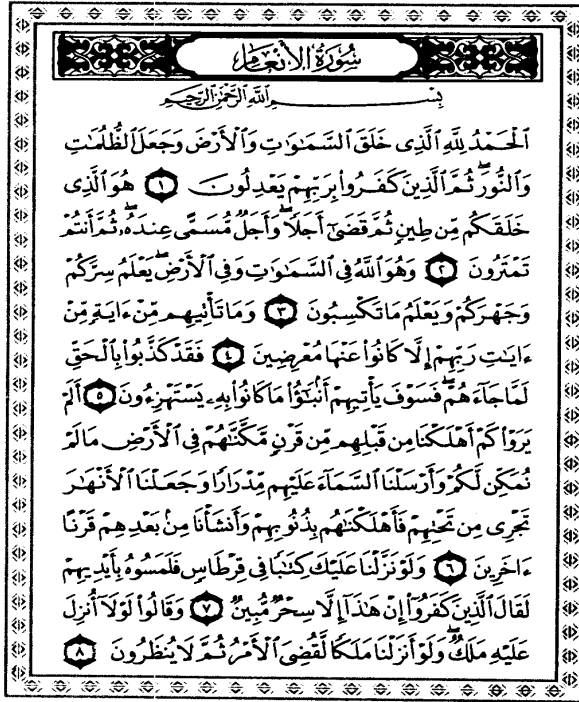 سُورَةُ الأَنْعَامِ
بِسْمِ ٱللَّهِ ٱلرَّحْمَٰنِ ٱلرَّحِيمِ
ٱلْحَمْدُ لِلَّهِ ٱلَّذِى خَلَقَ ٱلسَّمَٰوَٰتِ وَٱلْأَرْضَ وَجَعَلَ ٱلظُّلُمَٰتِ
وَٱلنُّورَۖ ثُمَّ ٱلَّذِينَ كَفَرُوا۟ بِرَبِّهِمْ يَعْدِلُونَ ١ هُوَ ٱلَّذِى
خَلَقَكُم مِّن طِينٍ ثُمَّ قَضَىٰٓ أَجَلًاۖ وَأَجَلٌ مُّسَمًّى عِندَهُۥۖ ثُمَّ أَنتُمْ
تَمْتَرُونَ ٢ وَهُوَ ٱللَّهُ فِى ٱلسَّمَٰوَٰتِ وَفِى ٱلْأَرْضِۖ يَعْلَمُ سِرَّكُمْ
وَجَهْرَكُمْ وَيَعْلَمُ مَا تَكْسِبُونَ ٣ وَمَا تَأْتِيهِم مِّنْ ءَايَةٍ مِّنْ
ءَايَٰتِ رَبِّهِمْ إِلَّا كَانُوا۟ عَنْهَا مُعْرِضِينَ ٤ فَقَدْ كَذَّبُوا۟ بِٱلْحَقِّ
لَمَّا جَآءَهُمْۖ فَسَوْفَ يَأْتِيهِمْ أَنۢبَٰٓؤُا۟ مَا كَانُوا۟ بِهِۦ يَسْتَهْزِءُونَ ٥ أَلَمْ
يَرَوْا۟ كَمْ أَهْلَكْنَا مِن قَبْلِهِم مِّن قَرْنٍ مَّكَّنَّٰهُمْ فِى ٱلْأَرْضِ مَا لَمْ
نُمَكِّن لَّكُمْ وَأَرْسَلْنَا ٱلسَّمَآءَ عَلَيْهِم مِّدْرَارًا وَجَعَلْنَا ٱلْأَنْهَٰرَ
تَجْرِى مِن تَحْتِهِمْ فَأَهْلَكْنَٰهُم بِذُنُوبِهِمْ وَأَنشَأْنَا مِنۢ بَعْدِهِمْ قَرْنًا
ءَاخَرِينَ ٦ وَلَوْ نَزَّلْنَا عَلَيْكَ كِتَٰبًا فِى قِرْطَاسٍ فَلَمَسُوهُ بِأَيْدِيهِمْ
لَقَالَ ٱلَّذِينَ كَفَرُوٓا۟ إِنْ هَٰذَآ إِلَّا سِحْرٌ مُّبِينٌ ٧ وَقَالُوا۟ لَوْلَآ أُنزِلَ
عَلَيْهِ مَلَكٌۖ وَلَوْ أَنزَلْنَا مَلَكًا لَّقُضِىَ ٱلْأَمْرُ ثُمَّ لَا يُنظَرُونَ ٨